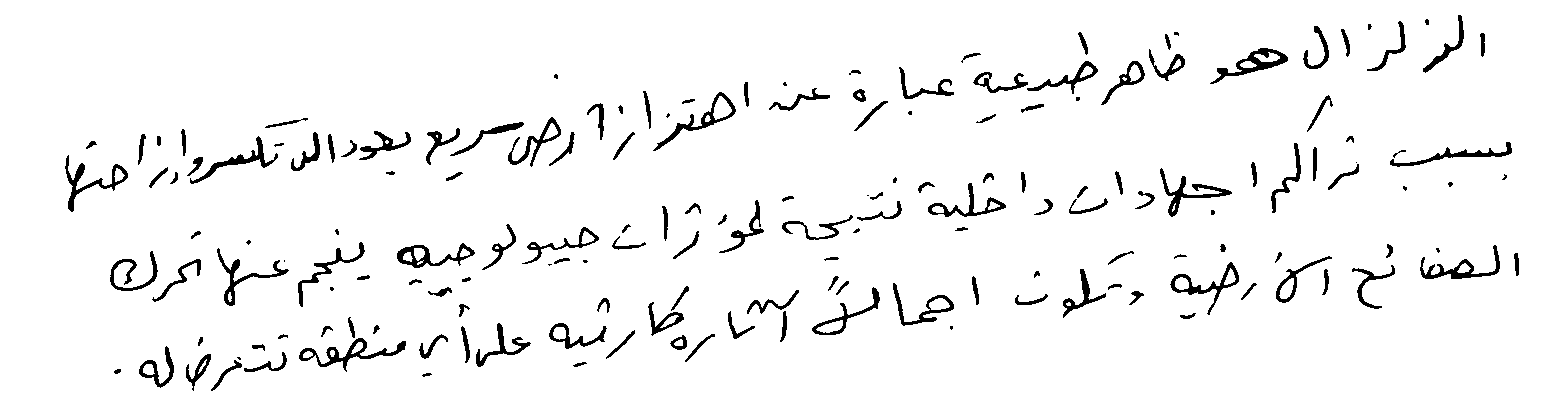 الزلزال هو ظاهر طبيعية عبارة عن اهتزاز أرضي سريع يعود الى تكسر وازاحتها
بسبب تراكم اجهادات داخلية نتيجة لمؤثرات جيولوجيه ينجم عنها تحرك
الصفائح الأرضية وتكون اجمالاً آثاره كارثيه على أي منطقه تتعرض له .